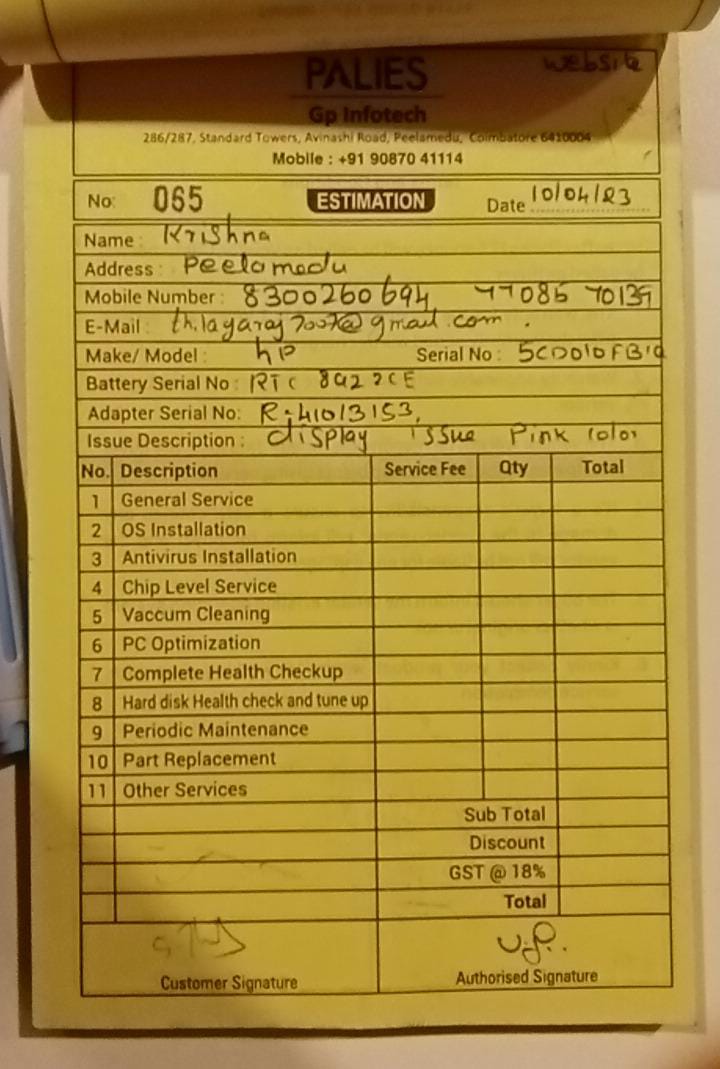 website
PALIES
Gp Infotech
286/287, Standard Towers, Avinashi Road, Peelamedu, Coimbatore 6410004
Mobile : +91 90870 41114
No: 065 ESTIMATION Date 10/04/23
Name : Krishna
Address : Peelamedu
Mobile Number : 8300260694, 77086 70139
E-Mail : thilagaraj7007@gmail.com.
Make/ Model : hp Serial No : 5CD010FB1Q
Battery Serial No : RTC
Adapter Serial No: R-41013153,
Issue Description : display issue Pink color
No. Description Service Fee Qty Total
1 General Service
2 OS Installation
3 Antivirus Installation
4 Chip Level Service
5 Vaccum Cleaning
6 PC Optimization
7 Complete Health Checkup
8 Hard disk Health check and tune up
9 Periodic Maintenance
10 Part Replacement
11 Other Services
Sub Total
Discount
GST @ 18%
Total
Customer Signature Authorised Signature